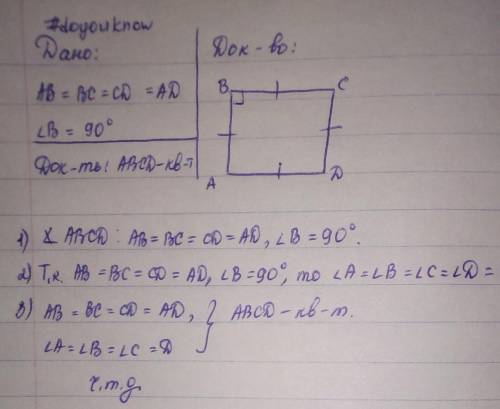 #doyouknow
Дано:
AB = BC = CD = AD
∠B = 90°
Док-ть: ABCD-кв-т
Док-во:
B
C
A
D
1) ABCD: AB = BC = CD = AD, ∠B = 90°.
2) Т.к. AB = BC = CD = AD, ∠B = 90°, то ∠A = ∠B = ∠C = ∠D =
3) AB = BC = CD = AD, } ABCD - кв-т.
∠A = ∠B = ∠C = D
ч.т.д.